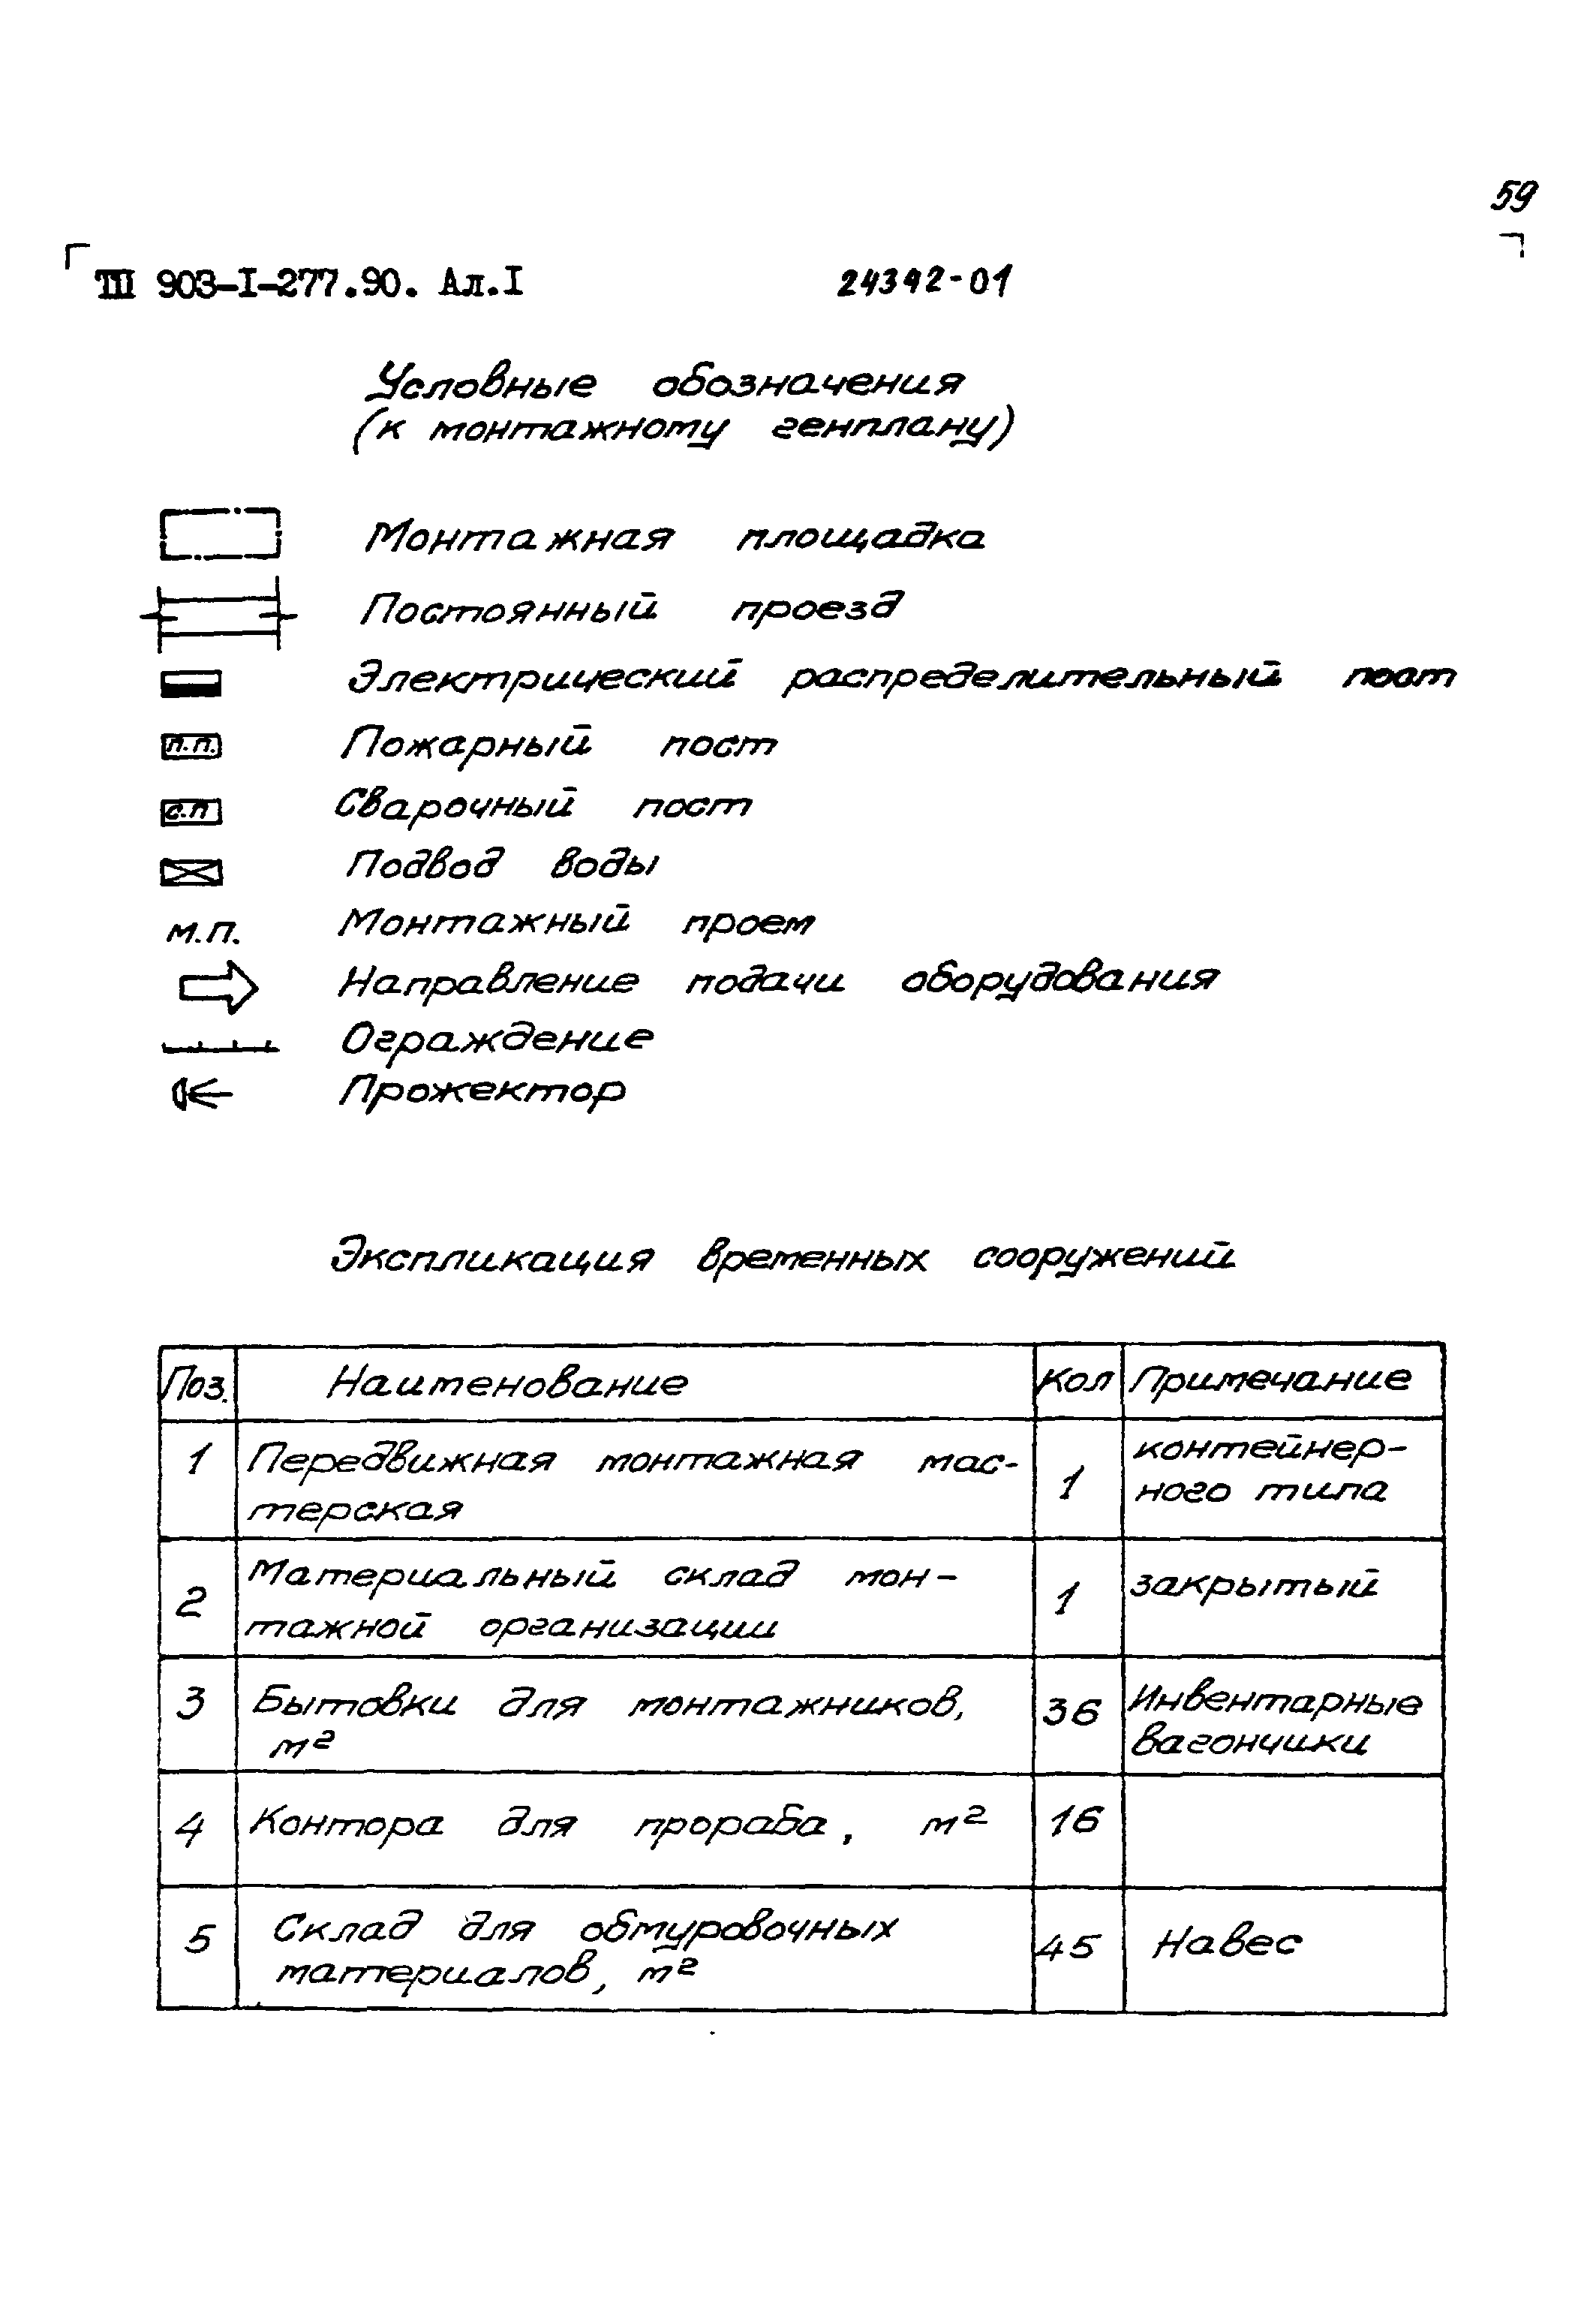 59
ТП 903-I-277.90. Ал.I 24392-01
Условные обозначения
(к монтажному генплану)
Монтажная площадка
Постоянный проезд
Электрический распределительный пост
п.п. Пожарный пост
с.п Сварочный пост
Подвод воды
м.п. Монтажный проем
Направление подачи оборудования
Ограждение
Прожектор
Экспликация временных сооружений
Поз. Наименование Кол Примечание
1 Передвижная монтажная мас-
терская 1 контейнер-
ного типа
2 Материальный склад мон-
тажной организации 1 закрытый
3 Бытовки для монтажников,
м² 36 Инвентарные
вагончики
4 Контора для прораба, м² 16
5 Склад для обмуровочных
материалов, м² 45 Навес